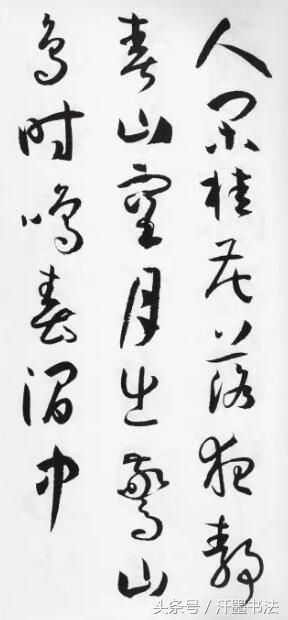 人闲桂花落夜静
春山空月出驚山
鸟时鸣春涧中
头条号 / 汗墨书法